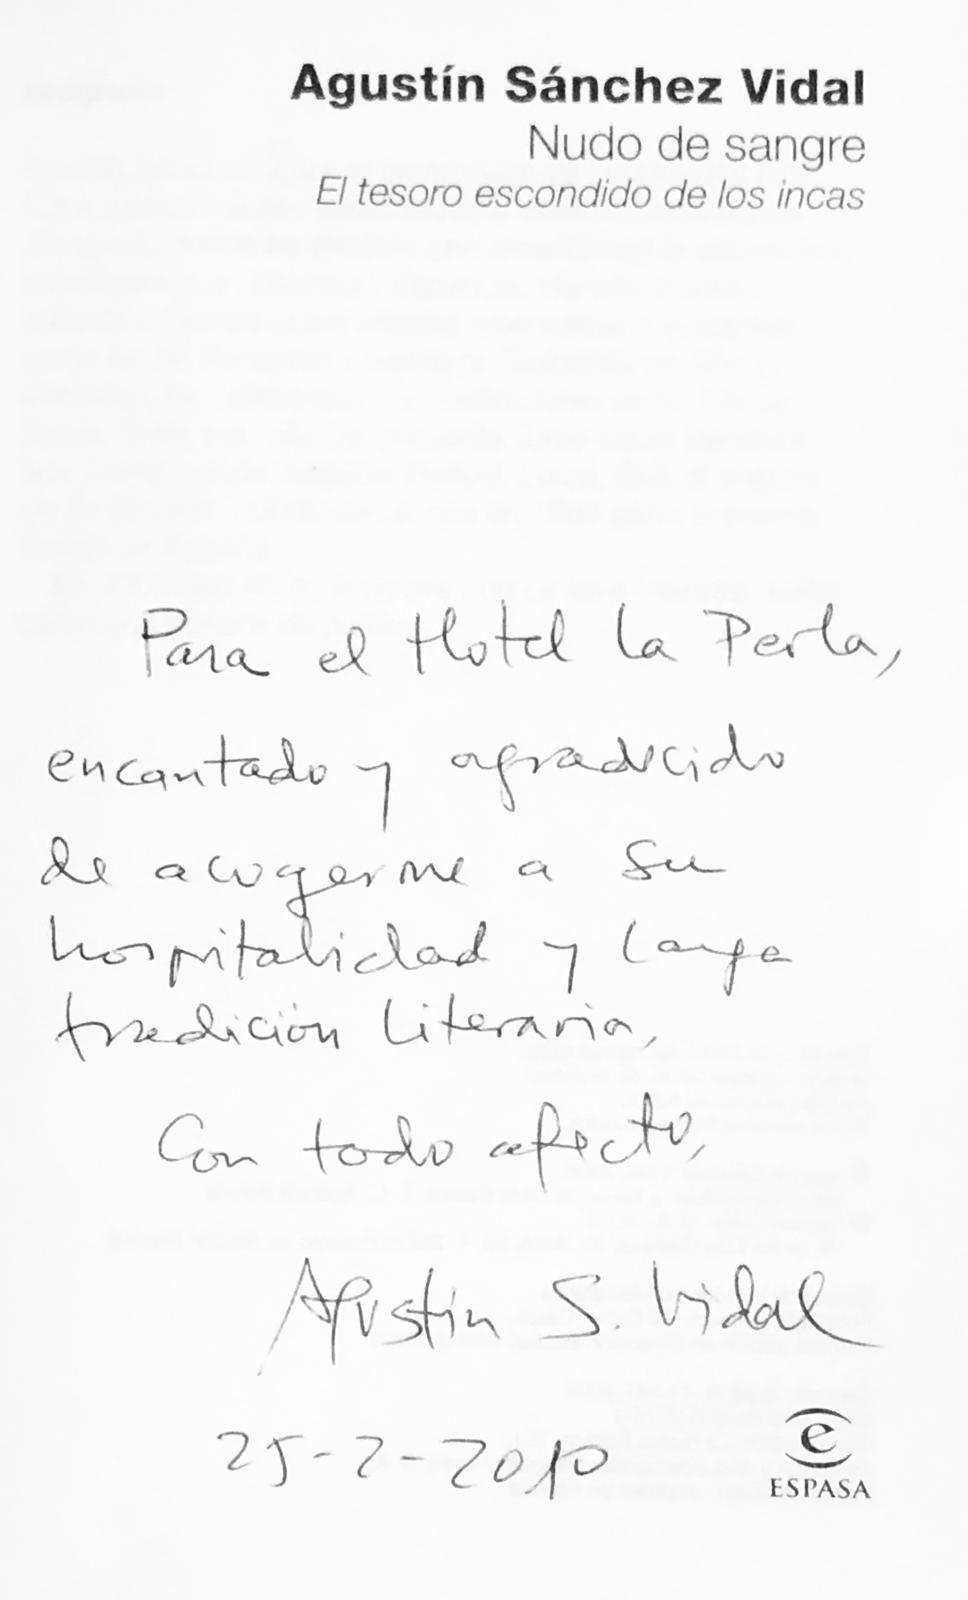 Agustín Sánchez Vidal
Nudo de sangre
El tesoro escondido de los incas
Para el Hotel la Perla,
encantado y agradecido
de acogerme a su
hospitalidad y larga
tradición literaria,
Con todo afecto,
Agustín S. Vidal
25-2-2010
e
ESPASA